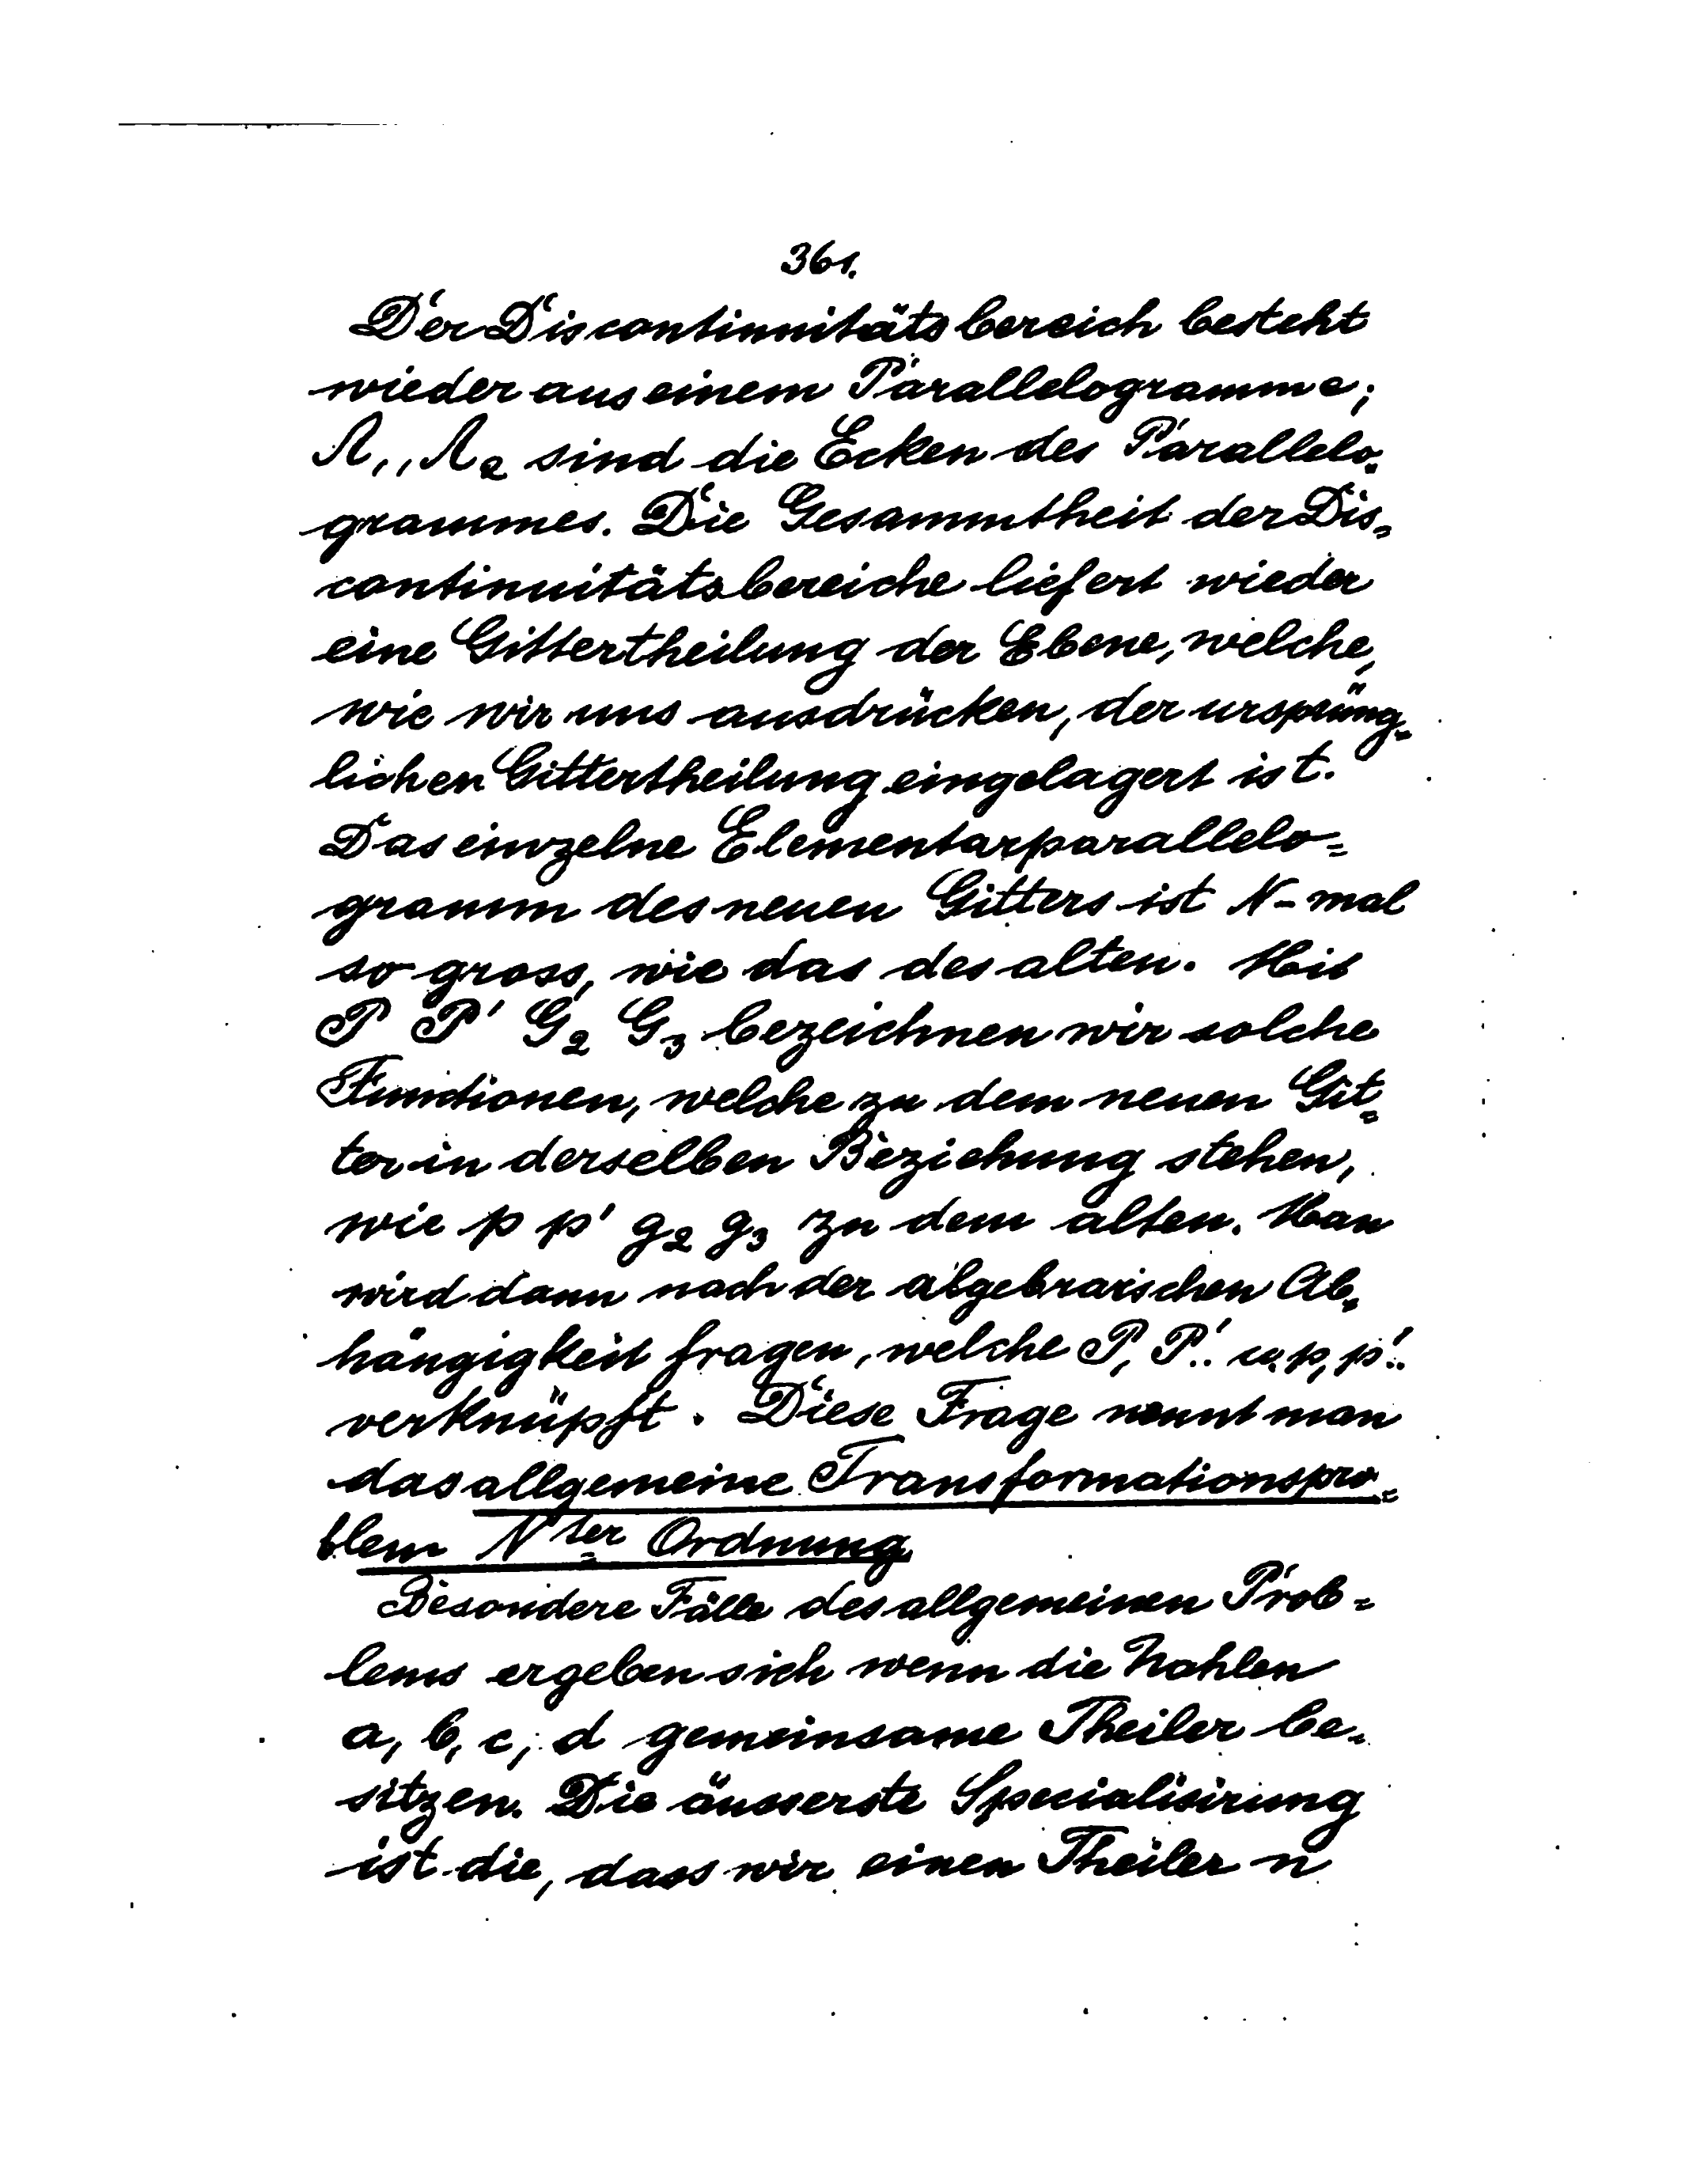 361.
Der Discontinuitätsbereich besteht
wieder aus einem Parallelogramme;
Λ₁, Λ₂ sind die Ecken des Parallelo-
grammes. Die Gesammtheit der Dis-
continuitätsbereiche liefert wieder
eine Gittertheilung der Ebene, welche,
wie wir uns ausdrücken, der ursprüng-
lichen Gittertheilung eingelagert ist.
Das einzelne Elementarparallelo-
gramm des neuen Gitters ist N-mal
so gross, wie das des alten. Mit
P P' G₂ G₃ bezeichnen wir solche
Functionen, welche zu dem neuen Git-
ter in derselben Beziehung stehen,
wie p p' g₂ g₃ zu dem alten. Man
wird dann nach der algebraischen Ab-
hängigkeit fragen, welche P, P'.. u. p, p'..
verknüpft. Diese Frage nennt man
das allgemeine Transformationspro-
blem Nter Ordnung
Besondere Fälle des allgemeinen Prob-
lems ergeben sich wenn die Zahlen
a, b, c, d gemeinsame Theiler be-
sitzen. Die äusserste Specialisirung
ist die, dass wir einen Theiler n